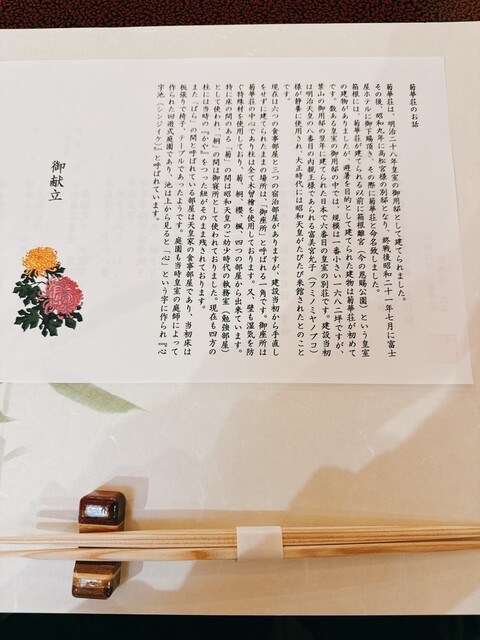 菊華荘のお話
菊華荘は、明治二十八年皇室の御用邸として建てられました。
その後、昭和九年に高松宮様の別邸となり、終戦後昭和二十一年七月に富士
屋ホテルに御下賜頂き、その際に菊華荘と命名致しました。
箱根には、菊華荘が建てられる以前に箱根離宮（今の恩賜公園）という皇室
の建物がありましたが、避暑を目的として建てられた建物は菊華荘が初めて
です。数ある皇室の御用邸の中では、規模は一番小さい一六八二坪ですが、
葉山の御用邸の翌年に建てられた日本で六番目の皇室の別荘です。建設当初
は明治天皇の八番目の内親王様であられる富美宮允子（フミノミヤノブコ）
様が静養に使用され、大正時代には昭和天皇がたびたび来館されたとのこと
です。
現在は六つの食事部屋と三つの宿泊部屋がありますが、建設当初から手直し
をせずに建てられたままの場所は、「御座所」と呼ばれる一角です。御座所は
菊華荘の中心であり柱は全て木曽檜を使用しております。又、壁も湿気を防
ぐ特殊材を使用しており、菊、桐、櫻、楓、四つの部屋から出来ています。
特に床の間のある「菊」の間は昭和天皇のご幼少時代の執務室（勉強部屋）
として使われ、「桐」の間は御寝所として使われておりました。現在も四の
柱には当時の『かや』をつった紐がそのまま残されております。
また「ばら」の間と呼ばれている部屋は天皇家の食事部屋であり、当初床は
板張りで椅子、テーブルであったようです。庭園も当時皇室の庭師によって
作られた回遊式庭園であり、池は上から見ると「心」という字に作られ『心
字池（シンジイケ）』と呼ばれています。
御献立